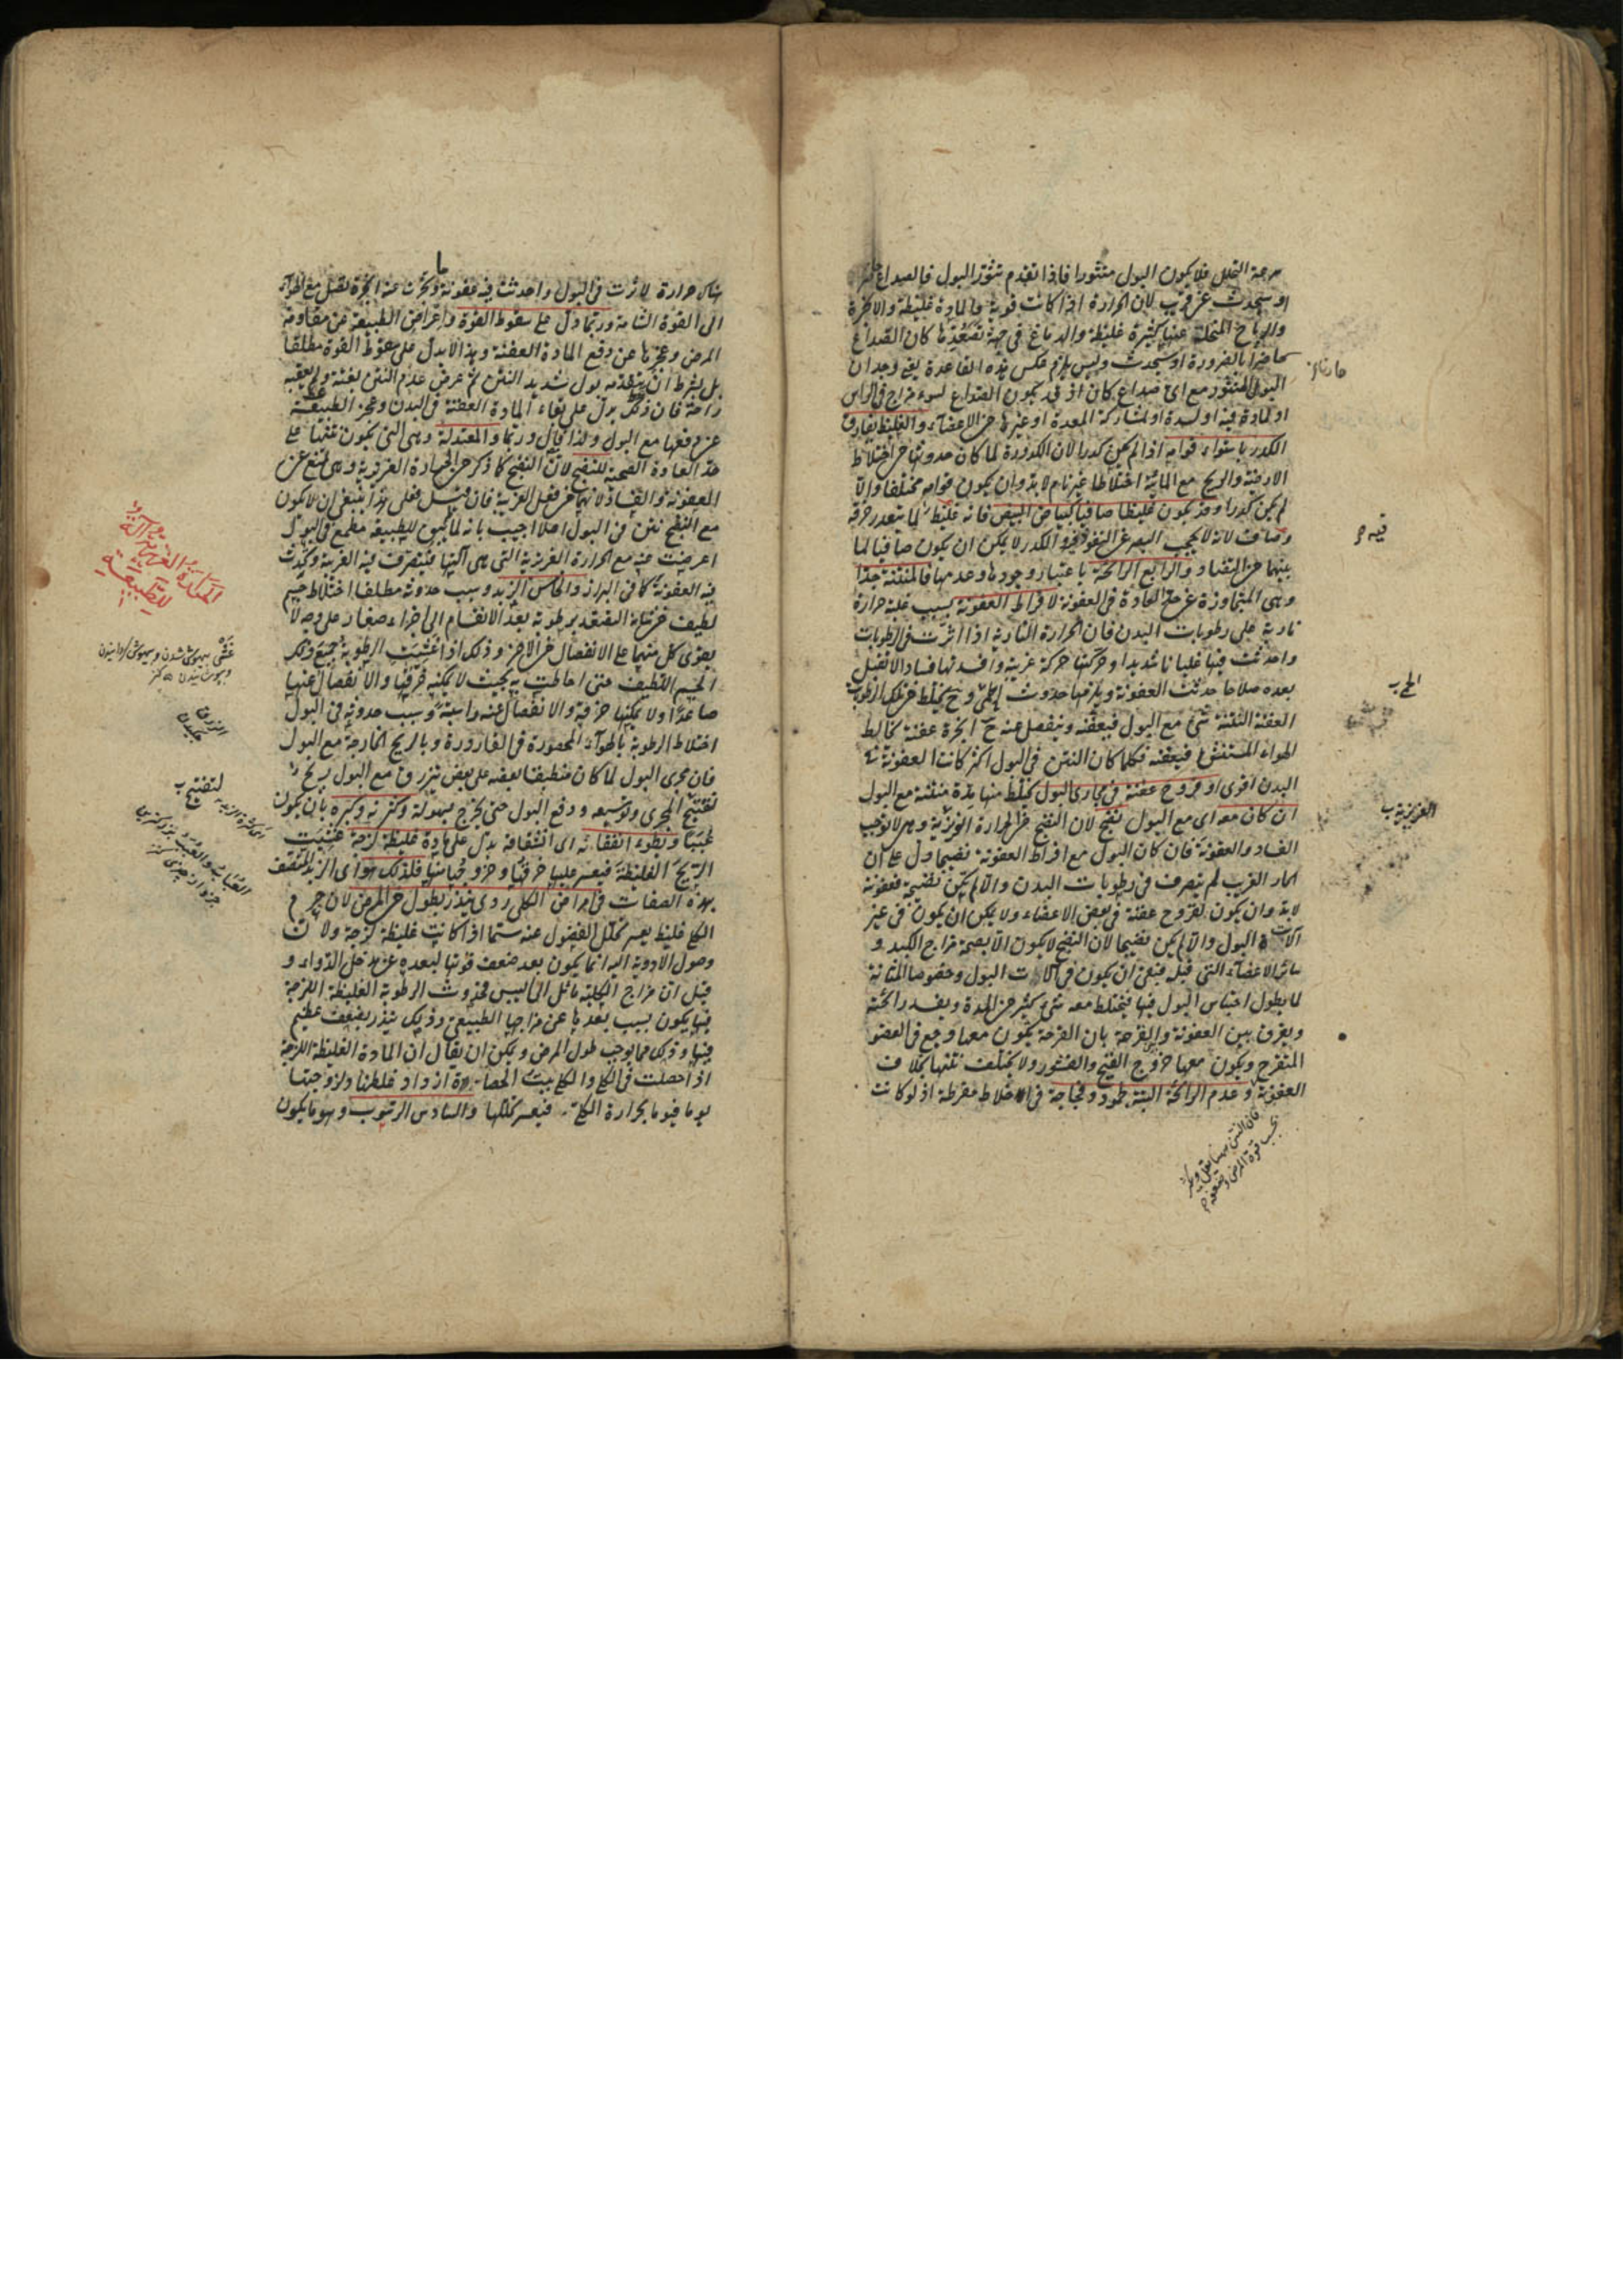 سرعة التحلل فلا يكون البول منثورا فاذا تقدم تثور البول فالصداع حاضر
او سيحدث عن قريب لان الحرارة اذا كانت قوية والمادة غليظة والابخرة
والرياح المتحللة عنها كثيرة غليظة والدماغ في جهة تصعدها كان الصداع
حاضرا بالضرورة او سيحدث وليس يلزم عكس هذه القاعدة يعني وجدان
البول المنثور مع اي صداع كان اذ قد يكون الصداع لسوء مزاج في الراس
او لمادة فيه او لسدة او لمشاركة المعدة او غيرها من الاعضاء والغليظ يفارق
الكدر باستواء قوامه اذا لم يكن كدرا لان الكدورة لما كان حدوثها من اختلاط
الارضية والريح مع المائية اختلاطا غير تام لابد وان يكون قوامه مختلفا والا
لم يكن كدرا وقد يكون غليظا صافيا كبياض البيض فانه غليظ لما يتعذر خرقه
وصاف لانه لا يحجب البصر عن النفوذ فيه والكدر لا يمكن ان يكون صافيا لما
بينهما من التضاد والرابع الرائحة باعتبار وجودها وعدمها فالمنتنة جدا
وهي المتجاوزة عن حد العادة في العفونة لافراط العفونة بسبب غلبة حرارة
نارية على رطوبات البدن فان الحرارة النارية اذا اثرت في الرطوبات
واحدثت فيها غليانا شديدا وحركتها حركة غريبة وافسدتها فسادا لا تقبل
بعده صلاحا حدثت العفونة ويلزمها حدوث الحمى وح يختلط من تلك الرطوبات
العفنة النتنة شئ مع البول فيعفنه وينفصل عنه ح ابخرة عفنة تخالط
الهواء المستنشق فيعفنه فكلما كان النتن في البول اكثر كانت العفونة في
البدن اقوى او قروح عفنة في مجاري البول يختلط منها مدة منتنة مع البول
ان كان معه اي مع البول نضج لان النضج من الحرارة الغريزية وهي لا توجب
الفساد والعفونة فان كان البول مع افراط العفونة نضيجا دل على ان
الحار الغريب لم يتصرف في رطوبات البدن والا لم يكن نضيجا فعفونته
لابد وان يكون لقروح عفنة في بعض الاعضاء ولا يمكن ان يكون في غير
آلات البول والا لم يكن نضيجا لان النضج لا يكون الا بصحة مزاج الكبد و
سائر الاعضاء التي قبله فبقي ان يكون في آلات البول وخصوصا المثانة
لما يطول احتباس البول فيها فيختلط معه شئ كثير من المدة ويفسد رائحته
ويفرق بين العفونة والقرحة بان القرحة يكون معها وجع في العضو
المتقرح ويكون معها خروج القيح والقشور ولا يختلف نتنها بخلاف
العفونة وعدم الرائحة البتة جمود وفجاجة في الاخلاط مفرطة اذ لو كانت
فان النتن
بحسب قوة المرض وضعفه
الحمى
الغريزية
هناك حرارة لاثرت في البول واحدثت فيه عفونة وتبخرت عنه ابخرة تصل مع الهواء
الى القوة الشامة وربما دل على سقوط القوة واعراض الطبيعة عن مقاومة
المرض وعجزها عن دفع المادة العفنة وهذا لا يدل على سقوط القوة مطلقا
بل بشرط ان يتقدمه بول شديد النتن ثم عرض عدم النتن بغتة ولم يعقبه
راحة فان ذلك يدل على بقاء المادة العفنة في البدن وعجز الطبيعة
عن دفعها مع البول ولذا قال وربما والمعتدلة وهي التي يكون نتنها على
حد العادة الصحية للنضج لان النضج كما ذكر من الحرارة الغريزية وهي تمنع عن
العفونة والفساد لانهما من فعل الغريبة فان قيل فعلى هذا ينبغي ان لا يكون
مع النضج نتن في البول اصلا اجيب بانه لما لم يبق للطبيعة مطمع في البول
اعرضت عنه مع الحرارة الغريزية التي هي آلتها فيتصرف فيه الغريبة وتحدث
فيه العفونة كما في البراز والخامس الزبد وسبب حدوثه مطلقا اختلاط جسم
لطيف خرقته برطوبة بعد الانقسام الى اجزاء صغار على وجه لا
يقوى كل منهما على الانفصال من الاخر وذلك اذا غشيت الرطوبة جميع ذلك
الجسم اللطيف حتى احاطت به بحيث لا يمكنه خرقها والانفصال عنها
صاعدا ولا يمكنها خرقه والانفصال عنه راسبة وسبب حدوثه في البول
اختلاط الرطوبة بالهواء المحصورة في القارورة وبالريح الخارجة مع البول
فان مجرى البول لما كان منطبقا بعضه على بعض ينزرق مع البول ريح
لتفتيح المجرى وتوسيعه ودفع البول حتى يخرج بسهولة وكثرته وكبره بان يكون
عببا وبطوء انفقائه اى انشقاقه يدل على مادة غليظة لزجة غشيت
الريح الغليظة فيعسر عليها خرقها وخروجها منها فلذلك هو اى الزبد المتصف
بهذه الصفات في امراض الكلى ردى ينذر بطول من المرض لان جرم
الكلى غليظ يعسر تحلل الفضول عنه سيما اذا كانت غليظة لزجة ولان
وصول الادوية اليه انما يكون بعد ضعف قوتها لبعده عن مدخل الدواء و
قيل ان مزاج الكلية مائل الى اليبس فحدوث الرطوبة الغليظة اللزجة
فيها يكون بسبب بعدها عن مزاجها الطبيعي وذلك ينذر بضعف عظيم
فيها وذلك مما يوجب طول المرض ويمكن ان يقال ان المادة الغليظة اللزجة
اذا حصلت في الكلى والكلى بيت الحصاة ازداد غلظها ولزوجتها
يوما فيوما بحرارة الكلى فيعسر تحللها والسادس الرسوب وهو ما يكون
الحرارة الغريزية آلة
للطبيعة
لتفتيح